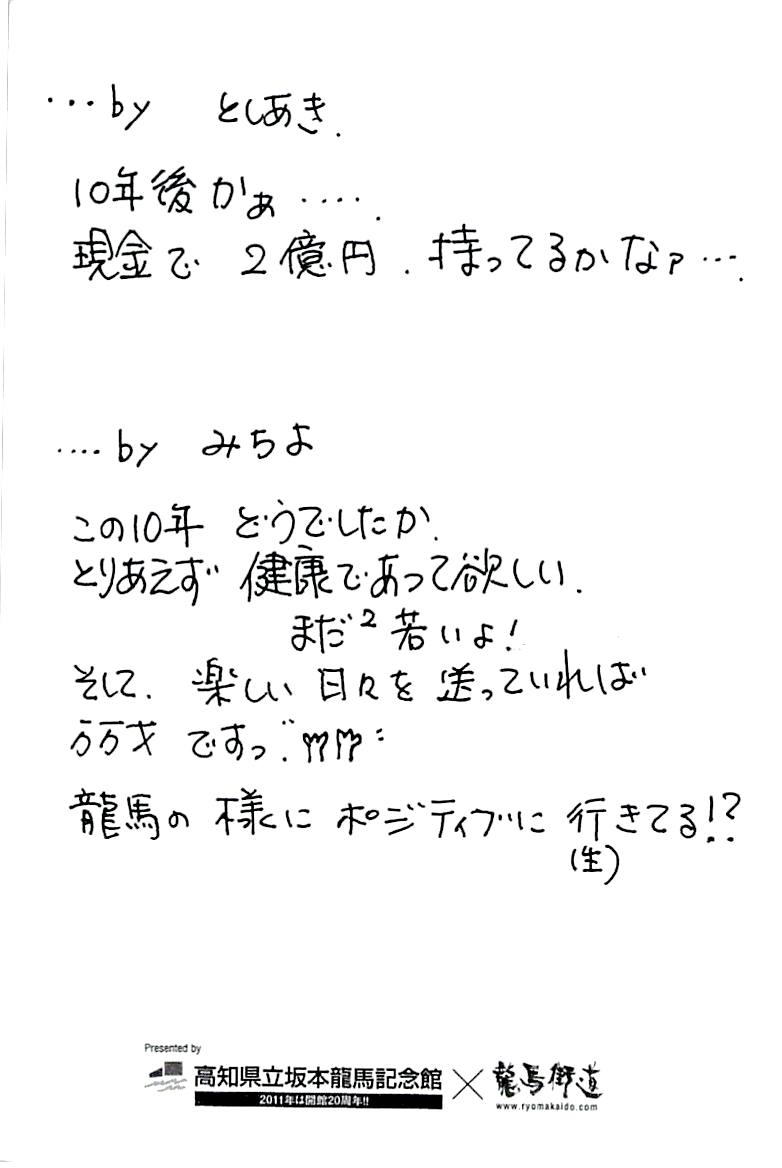 ...by としあき.
10年後かぁ.....
現金で 2億円. 持ってるかなァ....
....by みちよ
この10年 どうでしたか.
とりあえず 健康であって欲しい.
まだ²若いよ!
そして. 楽しい 日々を 送っていれば
万万才 ですっ.
龍馬の 様に ポジティブに 行きてる!?
(生)
Presented by
高知県立坂本龍馬記念館 × 龍馬街道
2011年は開館20周年!!
www.ryomakaido.com